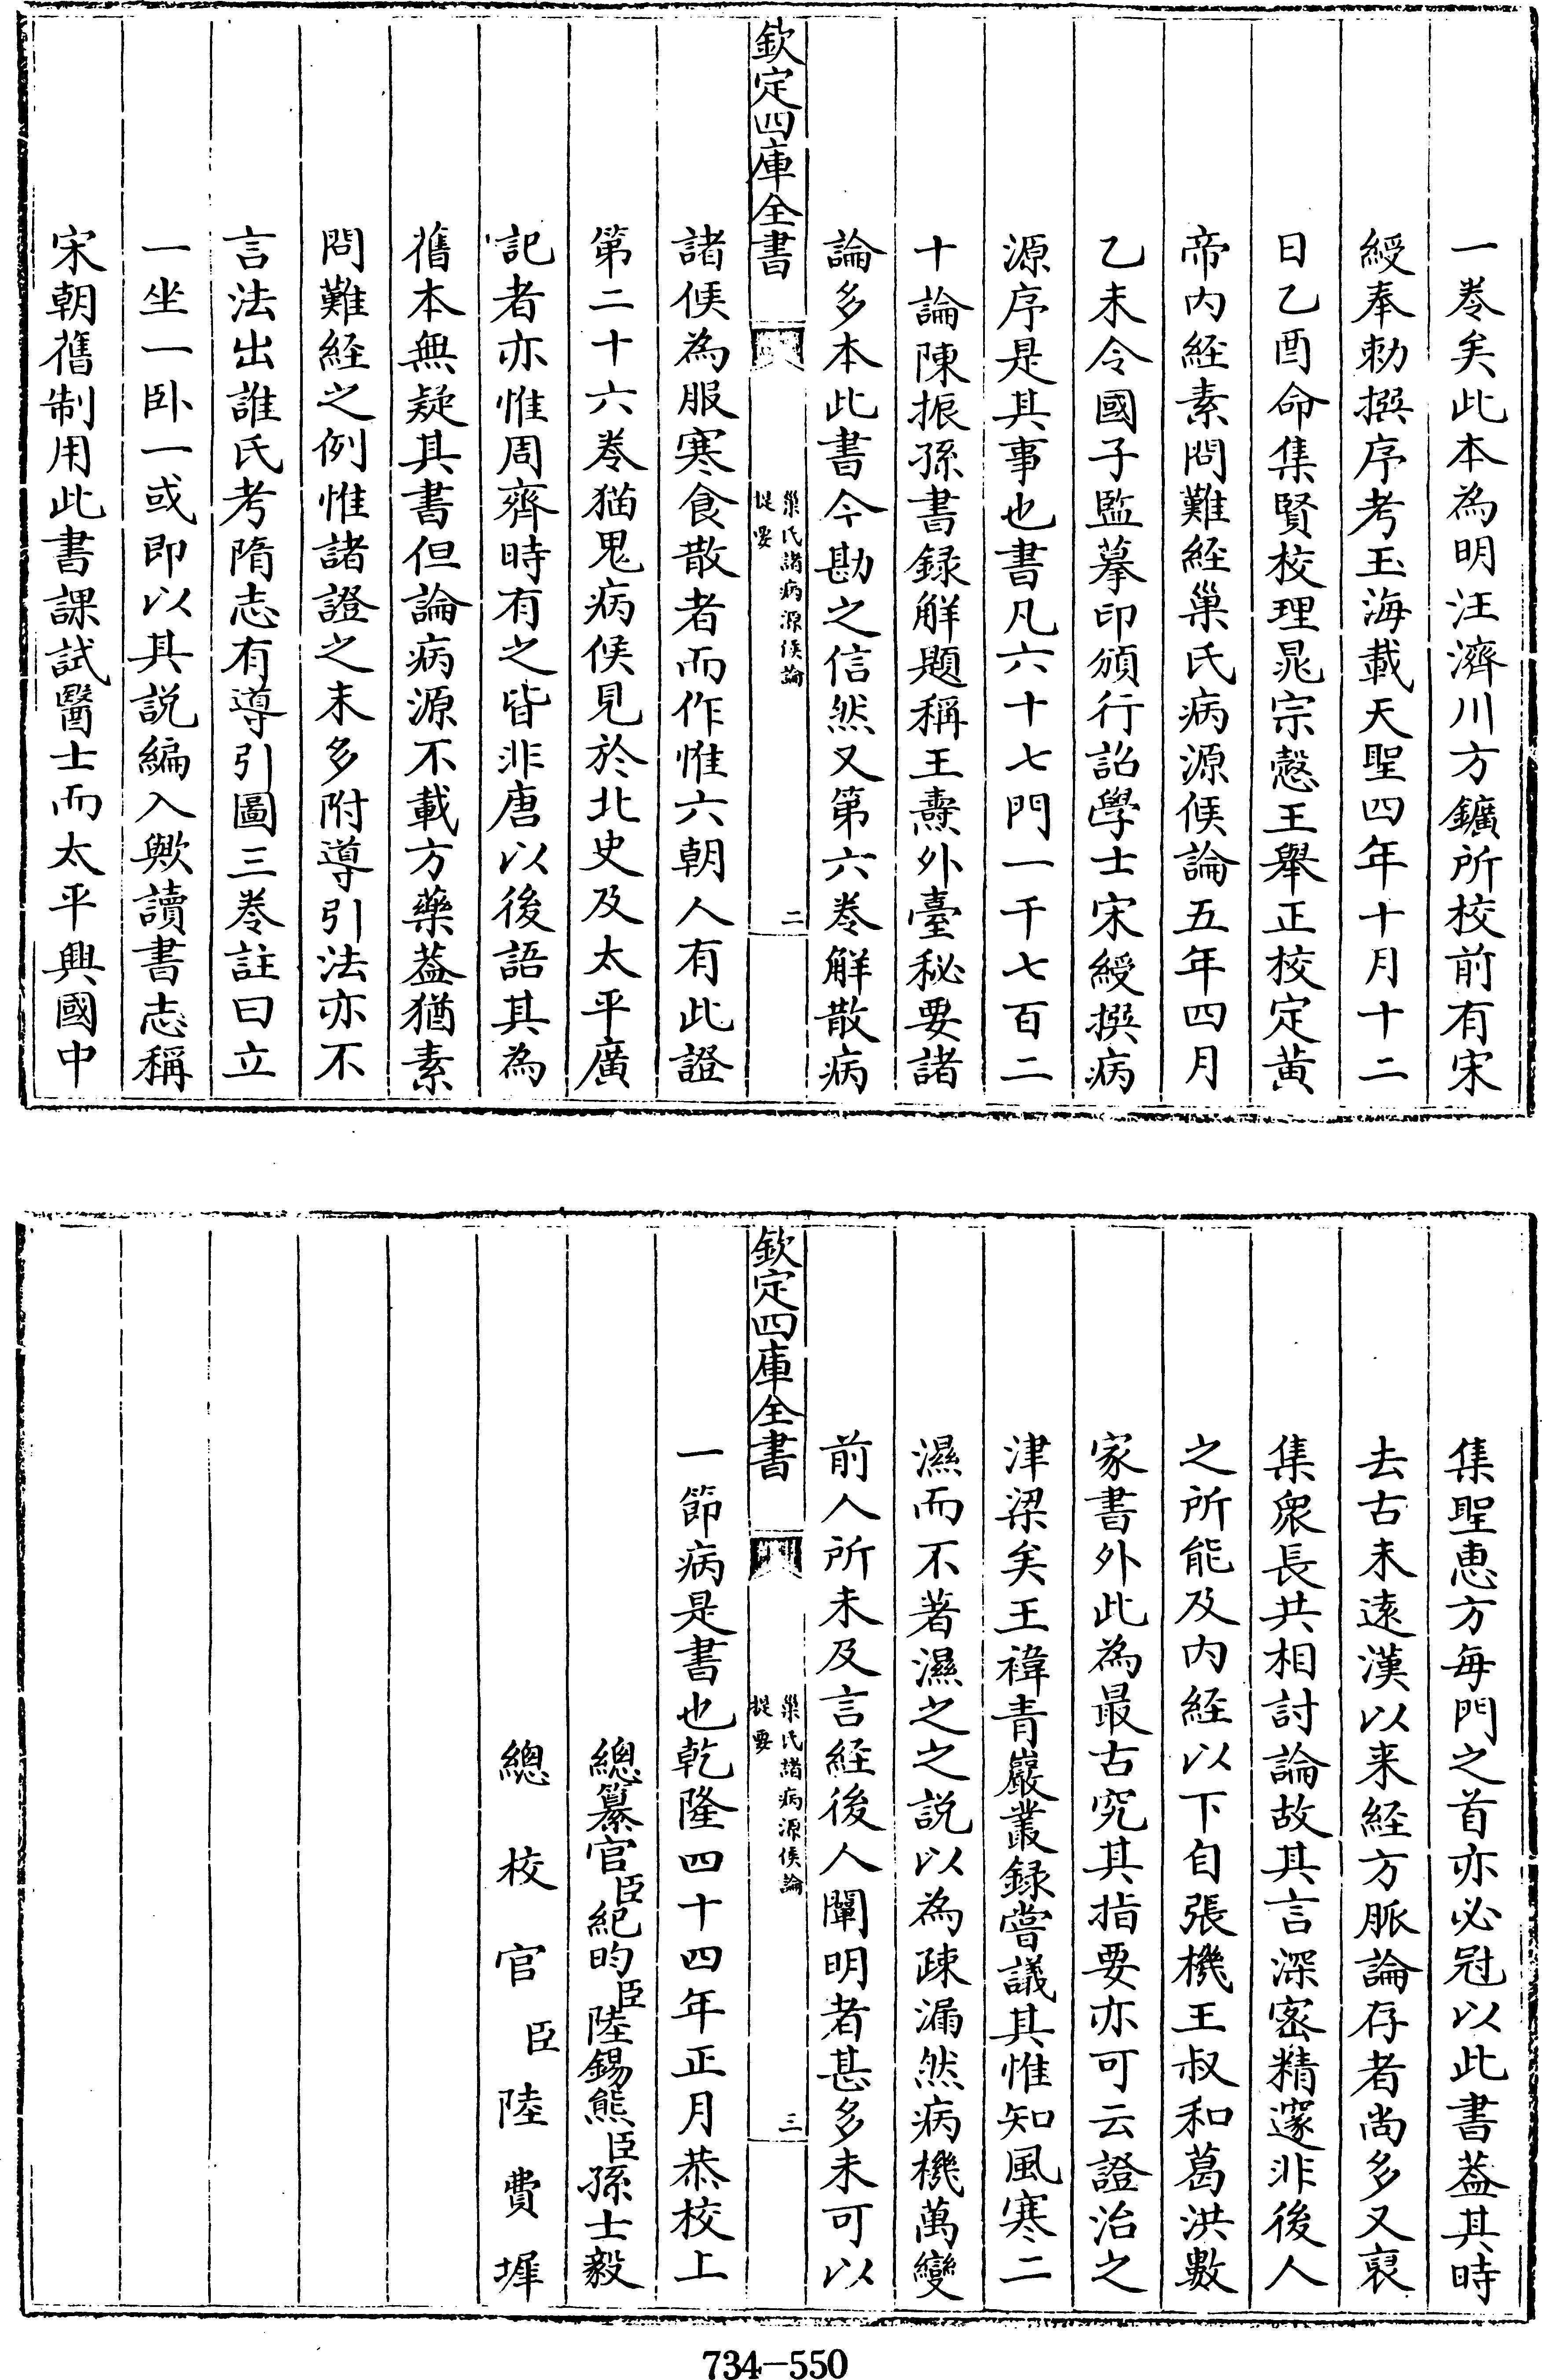 一卷矣此本為明汪濟川方鑛所校前有宋
綬奉勅撰序考玉海載天聖四年十月十二
日乙酉命集賢校理晁宗慤王舉正校定黃
帝內經素問難經巢氏病源候論五年四月
乙未令國子監摹印頒行詔學士宋綬撰病
源序是其事也書凡六十七門一千七百二
十論陳振孫書録解題稱王燾外臺秘要諸
論多本此書今勘之信然又第六卷解散病
欽定四庫全書
巢氏諸病源候論
提要
二
諸候為服寒食散者而作惟六朝人有此證
第二十六卷猫鬼病候見於北史及太平廣
記者亦惟周齊時有之皆非唐以後語其為
舊本無疑其書但論病源不載方藥蓋猶素
問難經之例惟諸證之末多附導引法亦不
言法出誰氏考隋志有導引圖三卷註曰立
一坐一卧一或即以其説編入歟讀書志稱
宋朝舊制用此書課試醫士而太平興國中
集聖惠方每門之首亦必冠以此書蓋其時
去古未遠漢以来經方脈論存者尚多又裒
集衆長共相討論故其言深密精邃非後人
之所能及內經以下自張機王叔和葛洪數
家書外此為最古究其指要亦可云證治之
津梁矣王禕青巖叢録嘗議其惟知風寒二
濕而不著濕之之説以為疎漏然病機萬變
前人所未及言經後人闡明者甚多未可以
欽定四庫全書
巢氏諸病源候論
提要
三
一節病是書也乾隆四十四年正月恭校上
總纂官臣紀昀臣陸錫熊臣孫士毅
總校官臣陸費墀
734-550